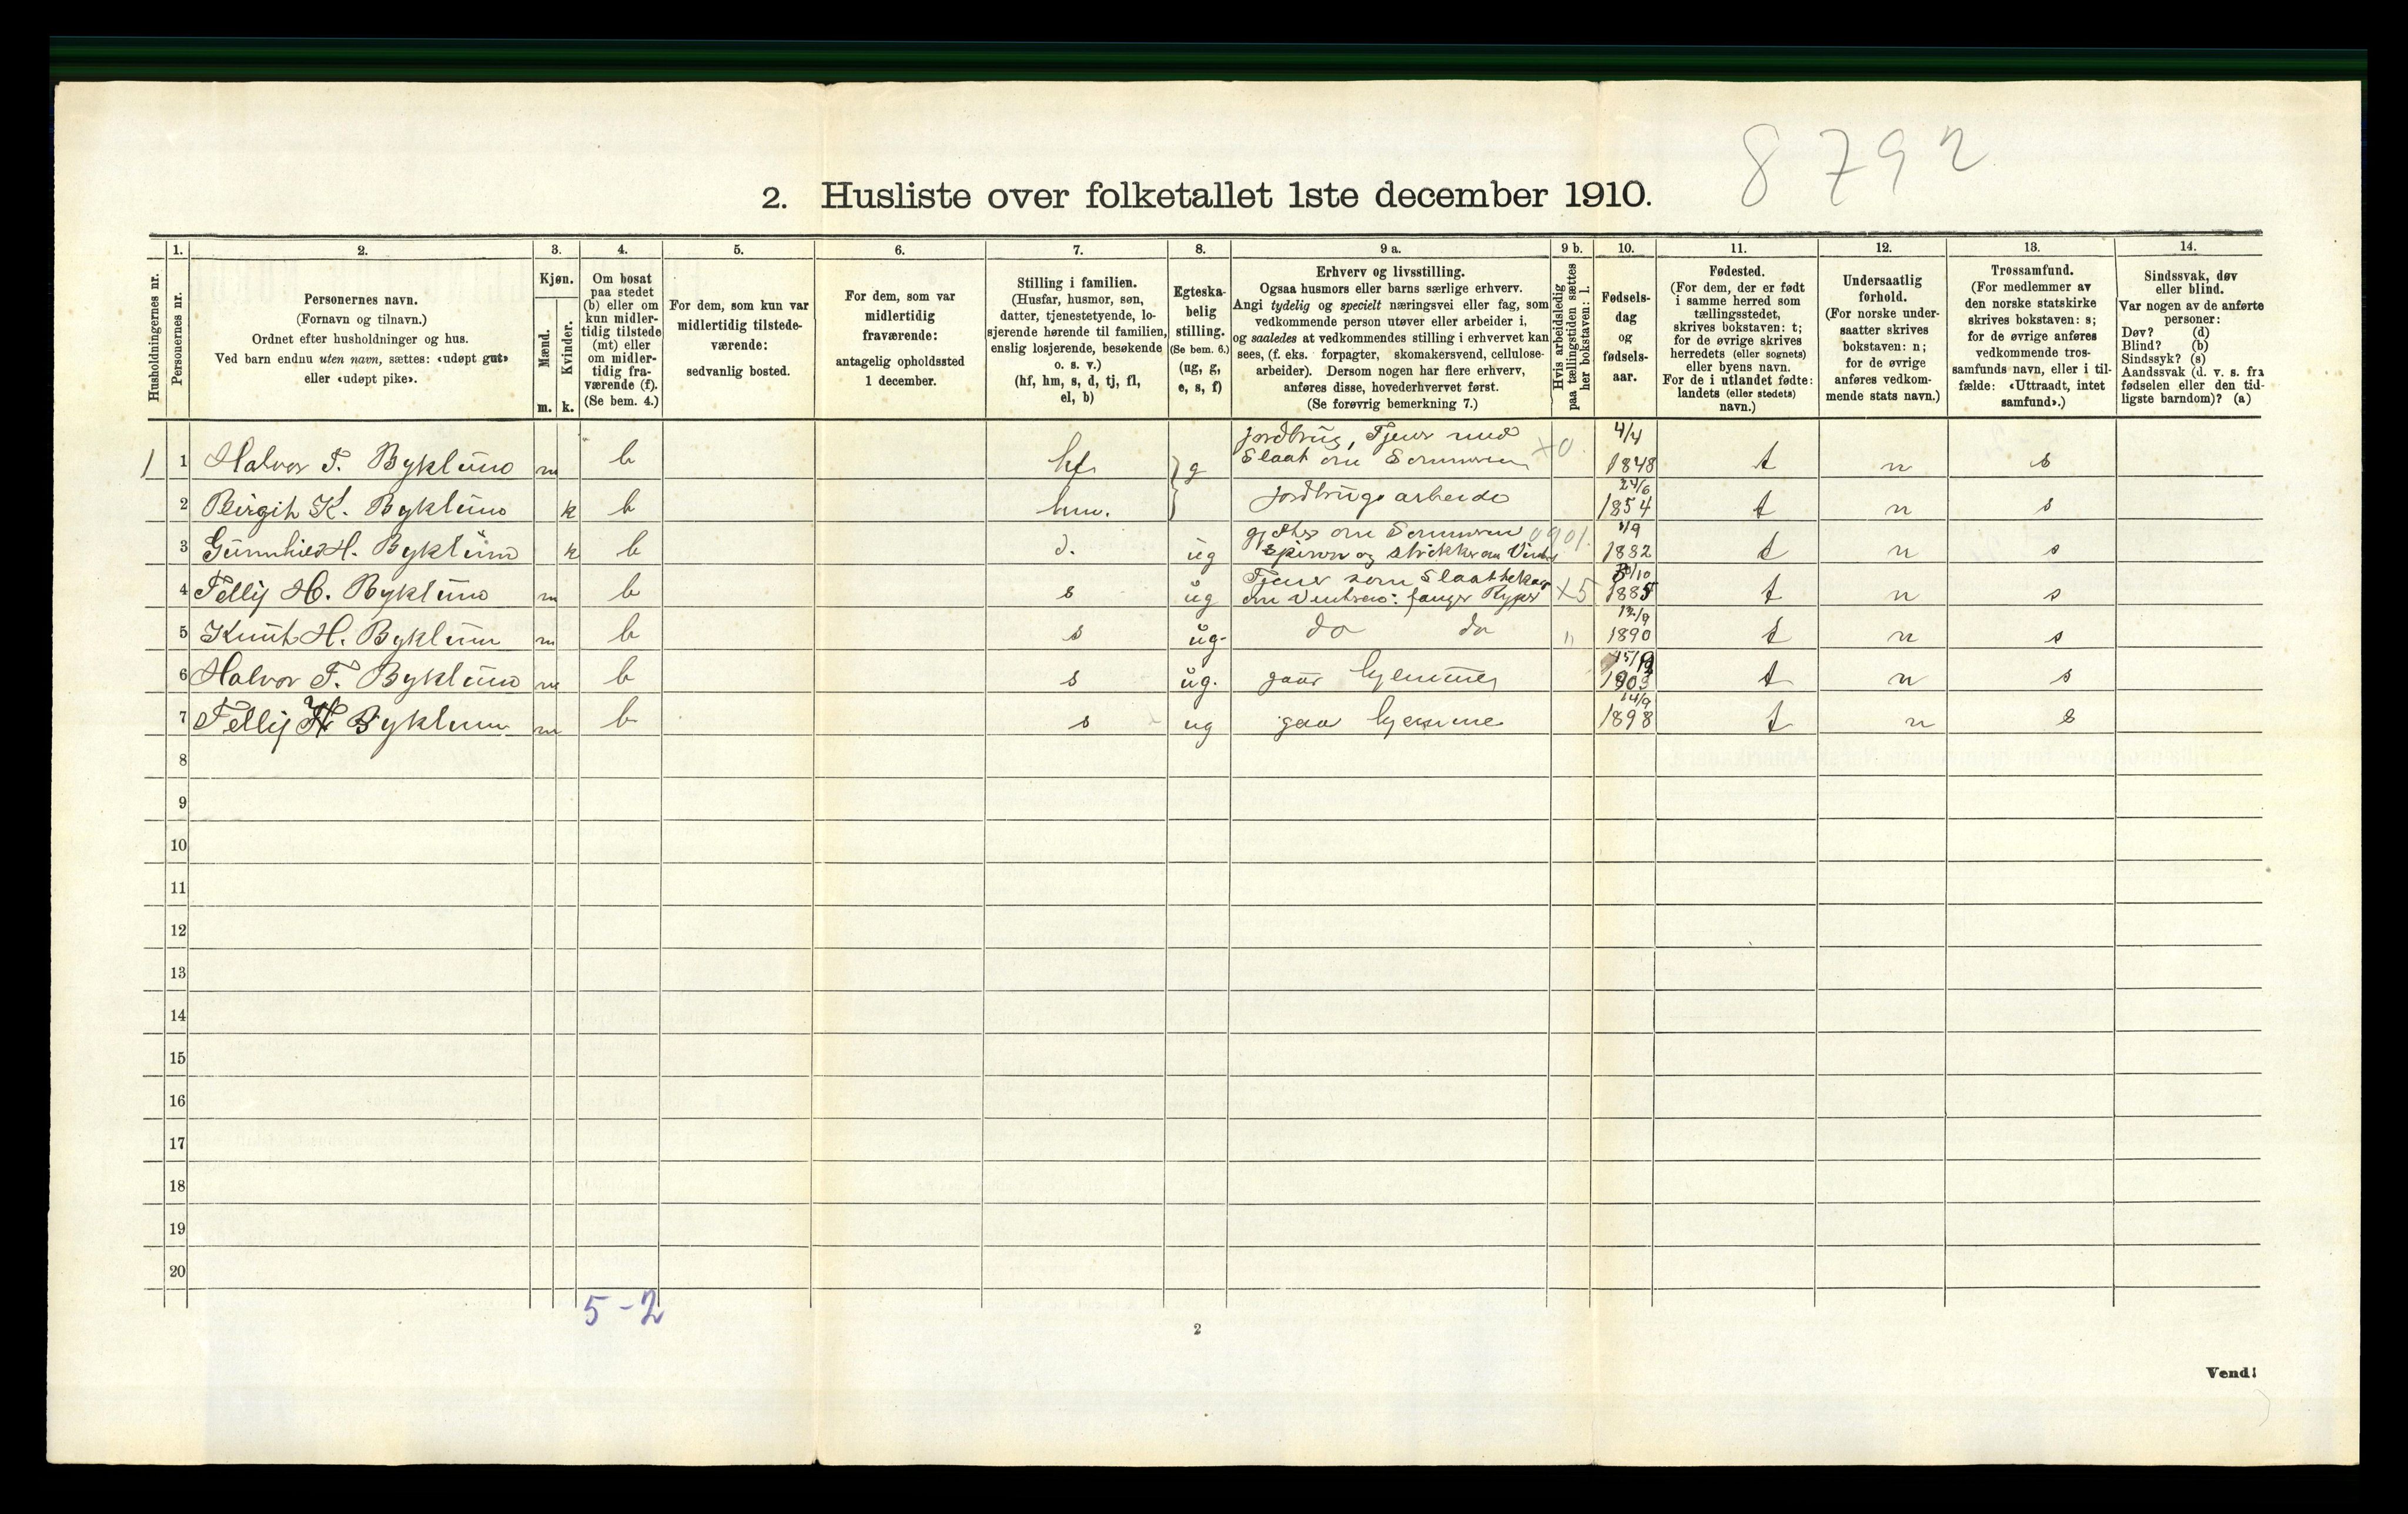 8792
2. Husliste over folketallet 1ste december 1910.
Husholdningernes nr.
1.
Personernes nr.
2.
Personernes navn.
(Fornavn og tilnavn.)
Ordnet efter husholdninger og hus.
Ved barn endnu uten navn, sættes: «udøpt gut»
eller «udøpt pike».
3.
Kjøn.
Mænd.
Kvinder.
m. k.
4.
Om bosat
paa stedet
(b) eller om
kun midler-
tidig tilstede
(mt) eller
om midler-
tidig fra-
værende (f).
(Se bem. 4.)
5.
For dem, som kun var
midlertidig tilstede-
værende:
sedvanlig bosted.
6.
For dem, som var
midlertidig
fraværende:
antagelig opholdssted
1 december.
7.
Stilling i familien.
(Husfar, husmor, søn,
datter, tjenestetyende, lo-
sjerende hørende til familien,
enslig losjerende, besøkende
o. s. v.)
(hf, hm, s, d, tj, fl,
el, b)
8.
Egteska-
belig
stilling.
(Se bem. 6.)
(ug, g,
e, s, f)
9 a.
Erhverv og livsstilling.
Ogsaa husmors eller barns særlige erhverv.
Angi tydelig og specielt næringsvei eller fag, som
vedkommende person utøver eller arbeider i,
og saaledes at vedkommendes stilling i erhvervet kan
sees, (f. eks. forpagter, skomakersvend, cellulose-
arbeider). Dersom nogen har flere erhverv,
anføres disse, hovederhvervet først.
(Se forøvrig bemerkning 7.)
9 b.
Hvis arbeidsledig
paa tællingstiden sættes
her bokstaven: l.
10.
Fødsels-
dag
og
fødsels-
aar.
11.
Fødested.
(For dem, der er født
i samme herred som
tællingsstedet,
skrives bokstaven: t;
for de øvrige skrives
herredets (eller sognets)
eller byens navn.
For de i utlandet fødte:
landets (eller stedets)
navn.)
12.
Undersaatlig
forhold.
(For norske under-
saatter skrives
bokstaven: n;
for de øvrige
anføres vedkom-
mende stats navn.)
13.
Trossamfund.
(For medlemmer av
den norske statskirke
skrives bokstaven: s;
for de øvrige anføres
vedkommende tros-
samfunds navn, eller i til-
fælde: «Uttraadt, intet
samfund».)
14.
Sindssvak, døv
eller blind.
Var nogen av de anførte
personer:
Døv? (d)
Blind? (b)
Sindssyk? (s)
Aandssvak (d. v. s. fra
fødselen eller den tid-
ligste barndom)? (a)
1 1 Halvor T. Byklum m b hf g Jordbrug, Tjener med Slaat om Sommeren x0. 4/4 1848 t n s
2 Birgit K. Byklum k b hm. Jordbrugsarbeide 24/6 1854 t n s
3 Gunnhild H. Byklum k b d. ug gjæter om Sommeren spinner og strikker om Vinter 0901. 1/9 1882 t n s
4 Tellij H. Byklum m b s ug Tjener som Slaattekar om Vinteren: fanger Ryper x5 /10 1885 t n s
5 Knut H. Byklum m b s ug- do do " 12/9 1890 t n s
6 Halvor T. Byklum m b s ug. gaar hjemme 1903 t n s
7 Tellij H Byklum m b s ug gaar hjemme 14/9 1898 t n s
8
9
10
11
12
13
14
15
16
17
18
19
20
5-2
2
Vend!